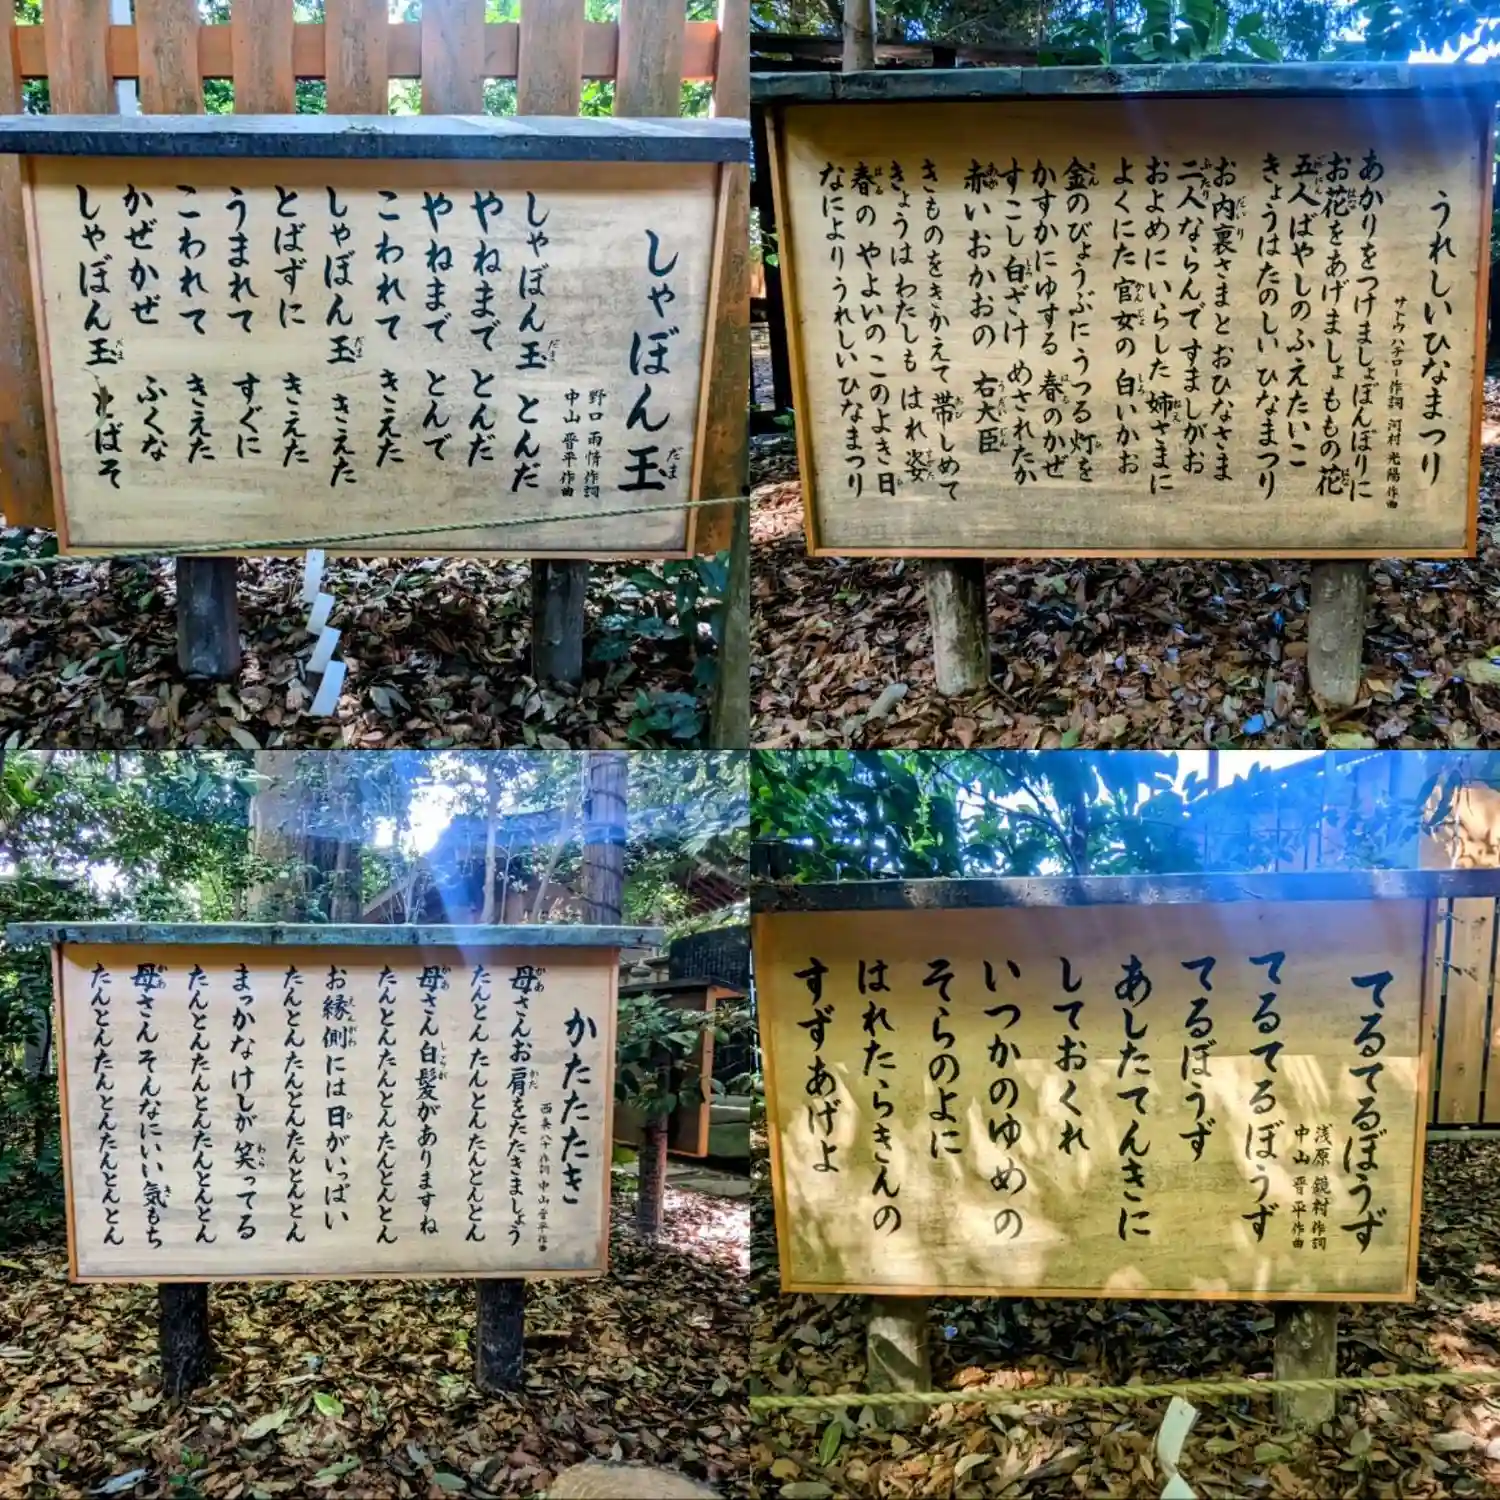 しゃぼん玉
だま
野口 雨情 作詞
中山 晋平 作曲
しゃぼん玉 とんだ
だま
やねまで とんだ
やねまで とんで
こわれて きえた
しゃぼん玉 きえた
だま
とばずに きえた
うまれて すぐに
こわれて きえた
かぜかぜ ふくな
しゃぼん玉 とばそ
だま
うれしいひなまつり
サトウハチロー作詞 河村 光陽 作曲
あかりをつけましょぼんぼりに
お花をあげましょ ももの花
はな はな
五人ばやしの ふえたいこ
ごにん
きょうはたのしい ひなまつり
お内裏さまと おひなさま
だいり
二人ならんで すましがお
ふたり
およめにいらした 姉さまに
ねえ
よくにた 官女の 白いかお
かんじょ しろ
金のびょうぶに うつる 灯を
きん ひ
かすかにゆする 春のかぜ
はる
すこし白ざけ めされたか
しろ
赤いおかおの 右大臣
あか うだいじん
きものをきかえて 帯しめて
おび
きょうは わたしも はれ姿
すがた
春の やよいの このよき日
はる ひ
なによりうれしい ひなまつり
かたたたき
西条八十 作詞 中山 晋平 作曲
母さんお肩をたたきましょう
かあ かた
たんとん たんとん たんとんとん
母さん白髪がありますね
かあ しらが
たんとんたんとんたんとんとん
お縁側には 日がいっぱい
えんがわ ひ
たんとんたんとんたんとんとん
まっかなけしが 笑ってる
わら
たんとんたんとんたんとんとん
母さん そんなにいい気もち
かあ き
たんとんたんとんたんとんとん
てるてるぼうず
浅原 鏡村 作詞
中山 晋平 作曲
てるてるぼうず
てるぼうず
あしたてんきに
しておくれ
いつかのゆめの
そらのよに
はれたらきんの
すずあげよ